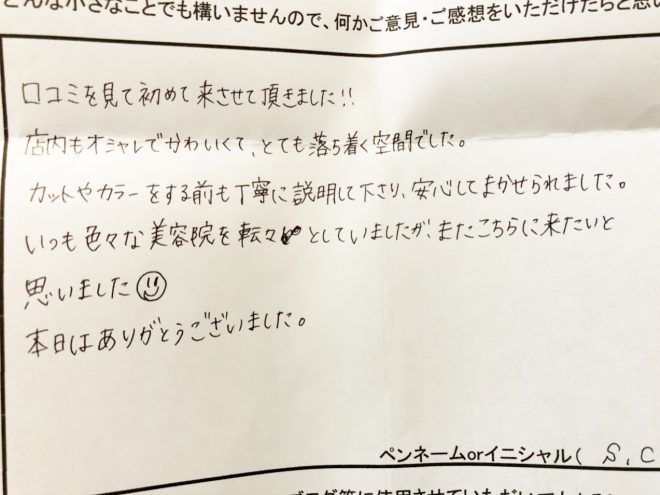 どんな小さなことでも構いませんので、何かご意見・ご感想をいただけたらと思い
口コミを見て初めて来させて頂きました!!
店内もオシャレでかわいくて、とても落ち着く空間でした。
カットやカラーをする前も丁寧に説明して下さり、安心してまかせられました。
いつも色々な美容院を転々としていましたが、またこちらに来たいと
思いました
本日はありがとうございました。
ペンネームorイニシャル( S.C